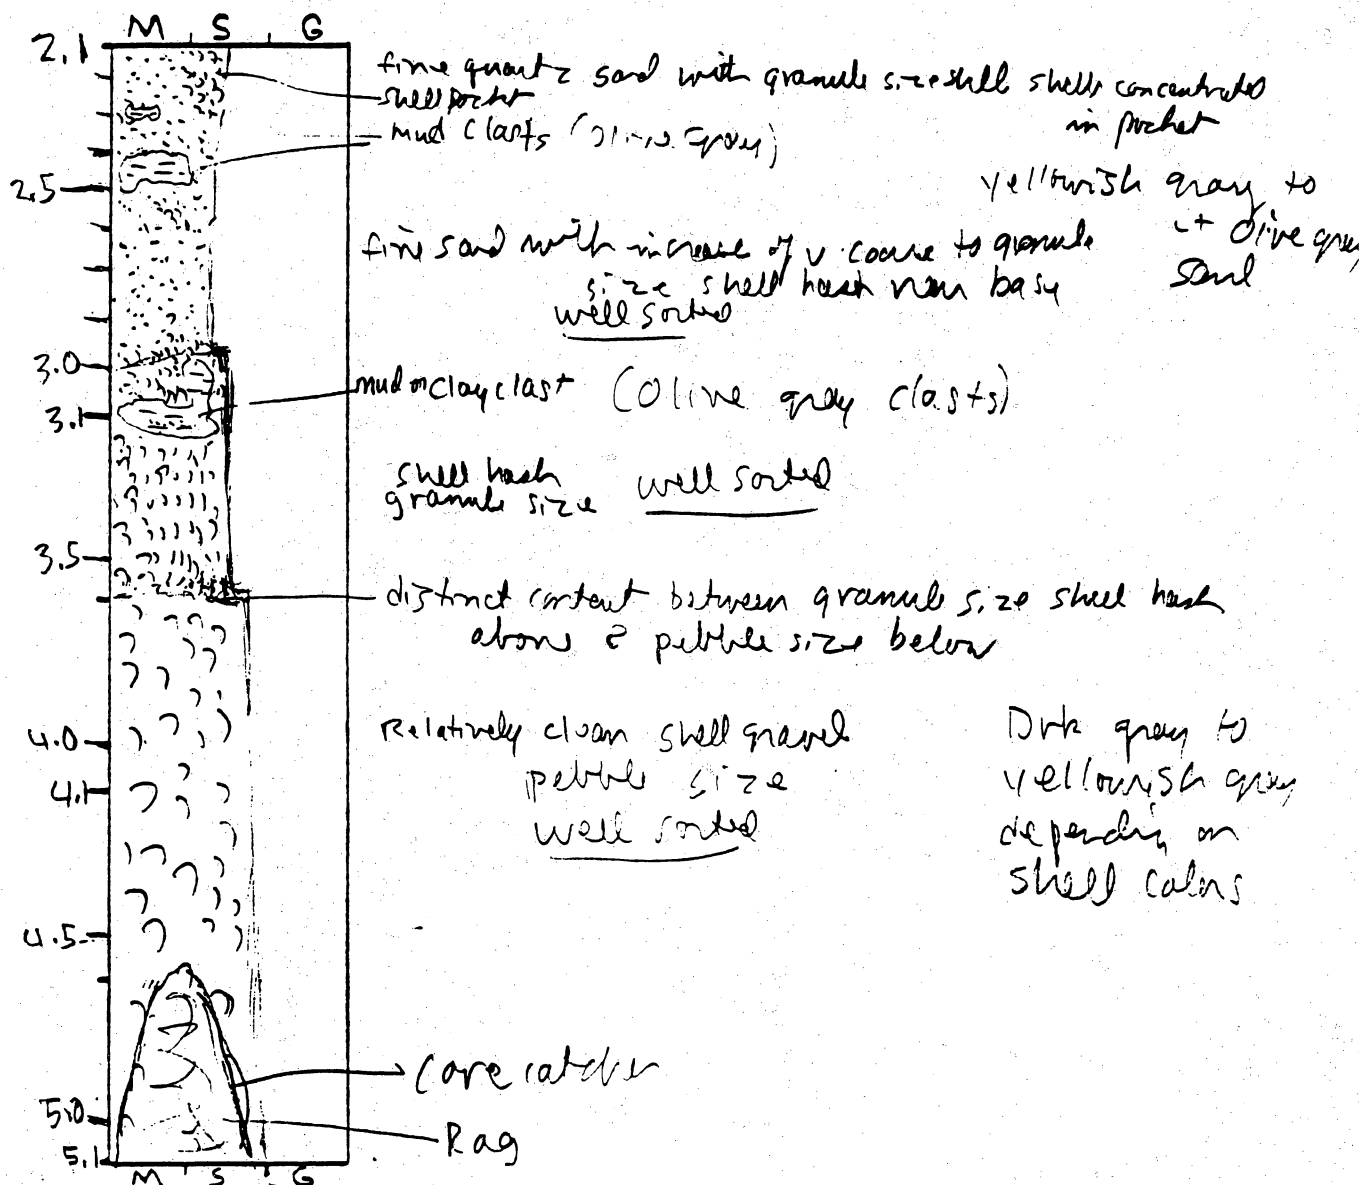 M S G
2.1
fine quartz sand with granule size shell shells concentrated
in pocket
shell pocket
mud clasts (olive gray)
2.5
yellowish gray to
lt olive gray
sand
fine sand with increase of v coarse to granule
size shell hash near base
well sorted
3.0
mud or clay clast (Olive gray clasts)
3.1
shell hash
granule size well sorted
3.5
distinct contact between granule size shell hash
above & pebble size below
Relatively clean shell gravel
pebble size
well sorted
Drk gray to
yellowish gray
depending on
shell colors
4.0
4.1
4.5
Core catcher
5.0
Rag
5.1
M S G